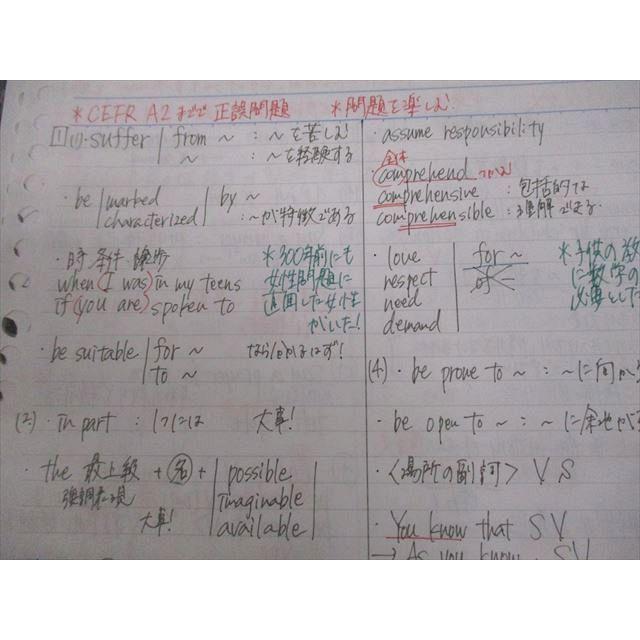 *CEFR A2 まで 正誤問題 *問題を楽しむ
1 (1)・suffer from ～ : ～を苦しむ
～ : ～を経験する
・be marked by ～
characterized : ～が特徴である
・時 条件 譲歩 *300年前にも
when (I was) in my teens 女性問題に
if (you are) spoken to 直面した女性
がいた!
・be suitable for ～ なら(分かるはず!
to ～
(2)・in part : 1つには 大事!
・the 最上級 + 名 + possible
強調表現 imaginable
大事! available
・assume responsibility
全体
comprehend つかむ
comprehensive : 包括的な
comprehensible : 理解できる
・love for ～ *子供の
respect of に数字の
need 必要とした
demand
(4)・be prone to ～ : ～に向か
・be open to ～ : ～に余地が
・<場所の副詞> V S
・You know that SV
→ As you know, SV